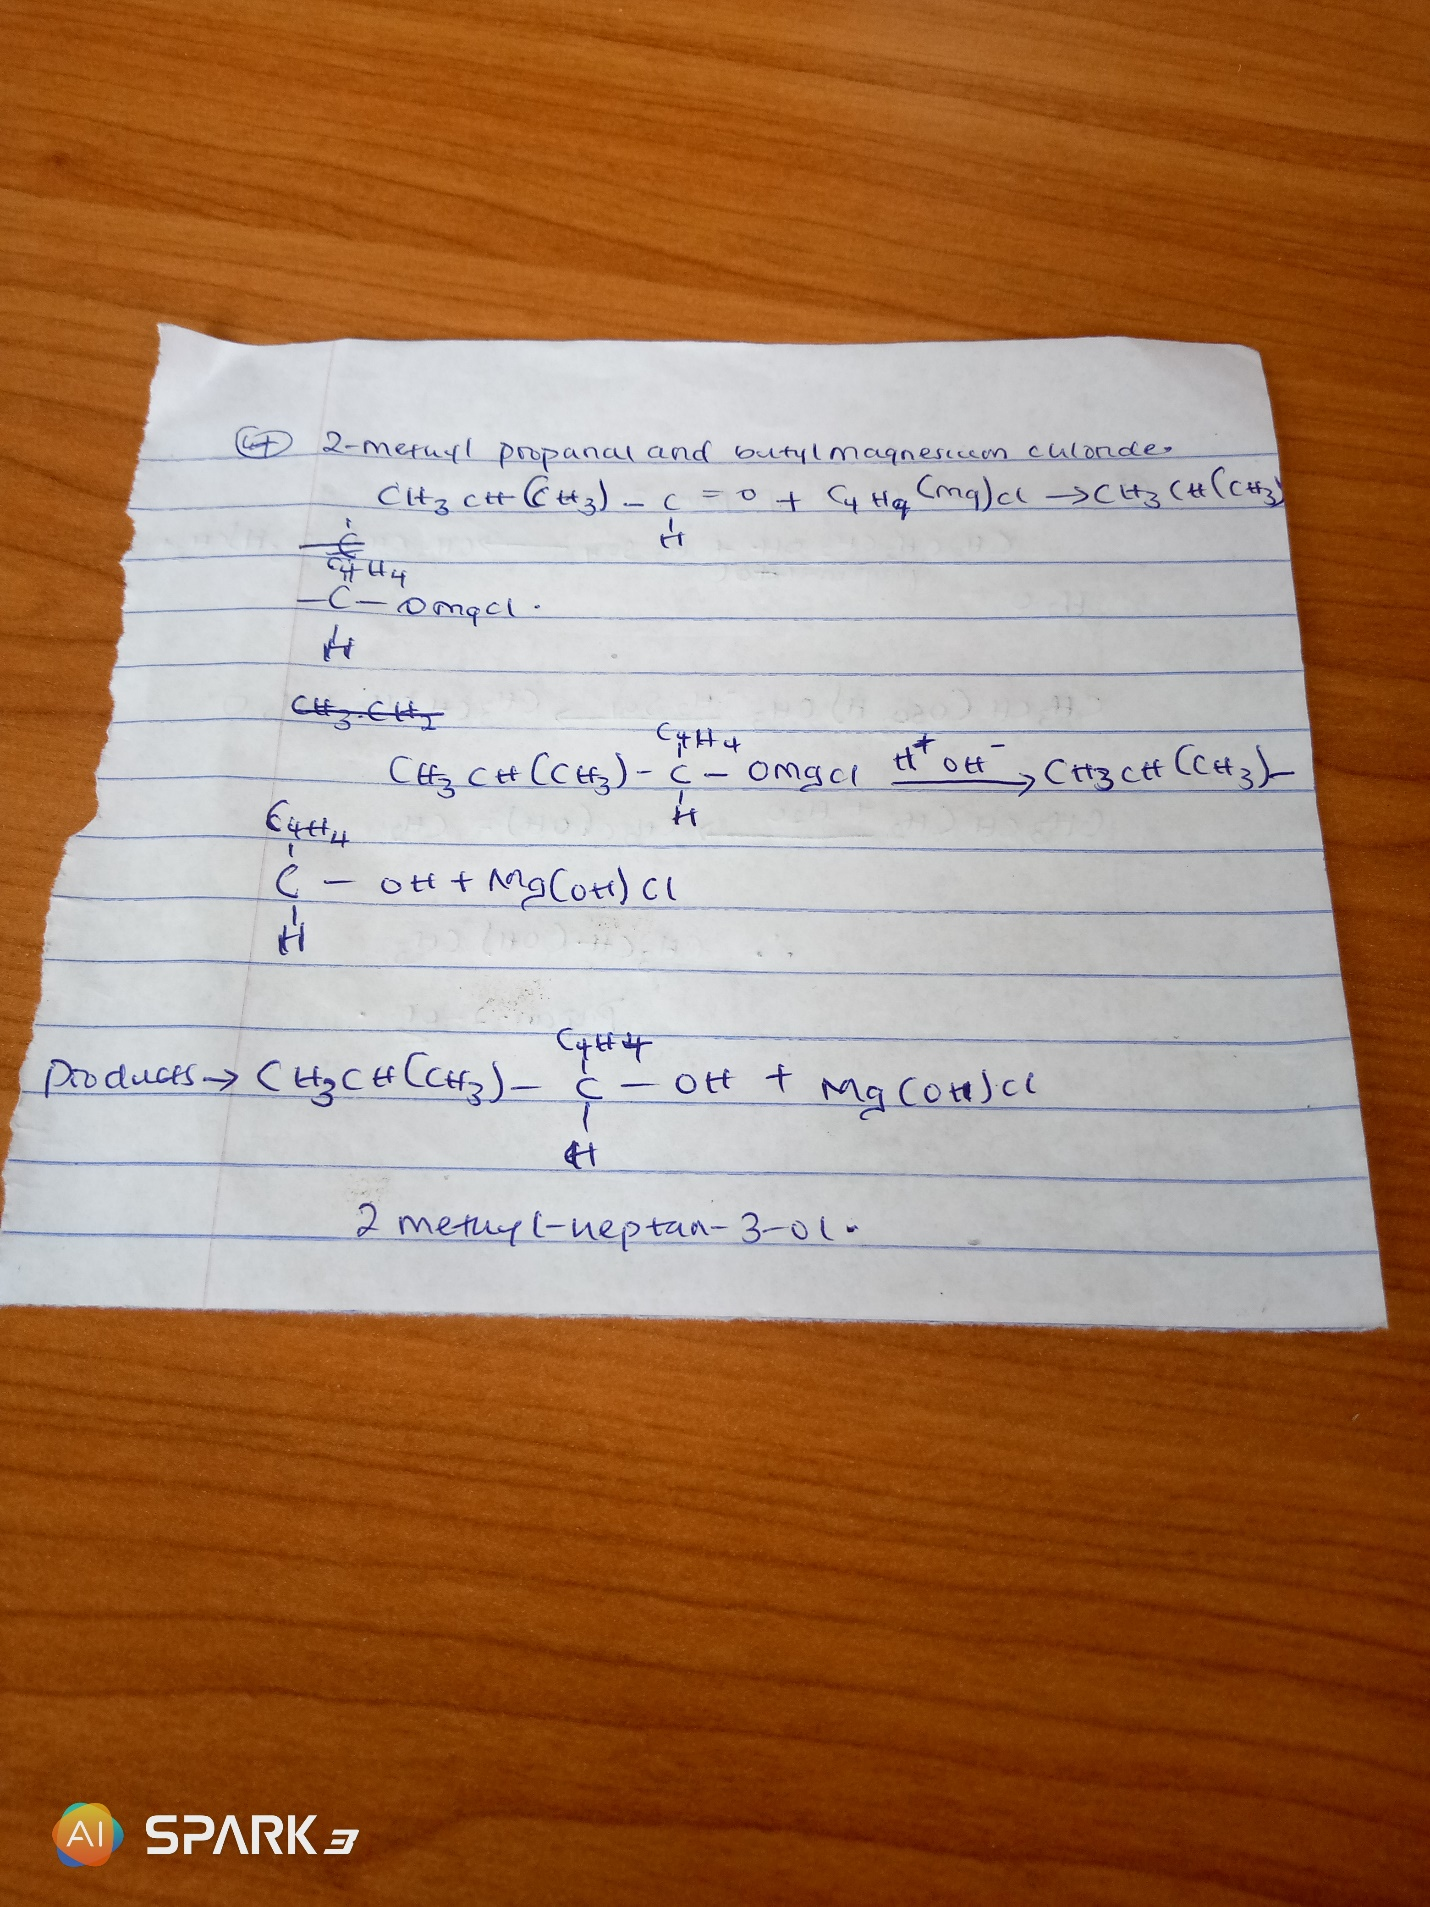 (4) 2-methyl propanal and butylmagnesium chloride.
CH3 CH (CH3) - C = O + C4H9 (Mg)Cl → CH3 CH (CH3)
H
C
C4H4
- C - OMgCl.
H
CH3.CH2
C4H4
CH3 CH (CH3) - C - OMgCl H+ OH- → CH3 CH (CH3) -
H
C4H4
C - OH + Mg(OH)Cl
H
C4H4
Products → CH3CH(CH3) - C - OH + Mg(OH)Cl
H
2 methyl-heptan-3-ol.
AI SPARK 3